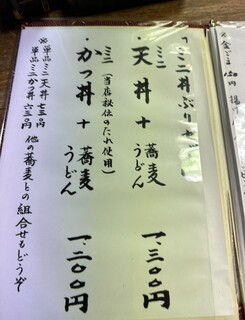 ミニ丼ぶりセット
・ミニ天丼+蕎麦 うどん 一、三〇〇円
・ミニかつ丼+蕎麦 うどん 一、二〇〇円
(当店秘伝のたれ使用)
※単品ミニ天丼 七三〇円
単品ミニかつ丼 六三〇円
他の蕎麦との組合せもどうぞ